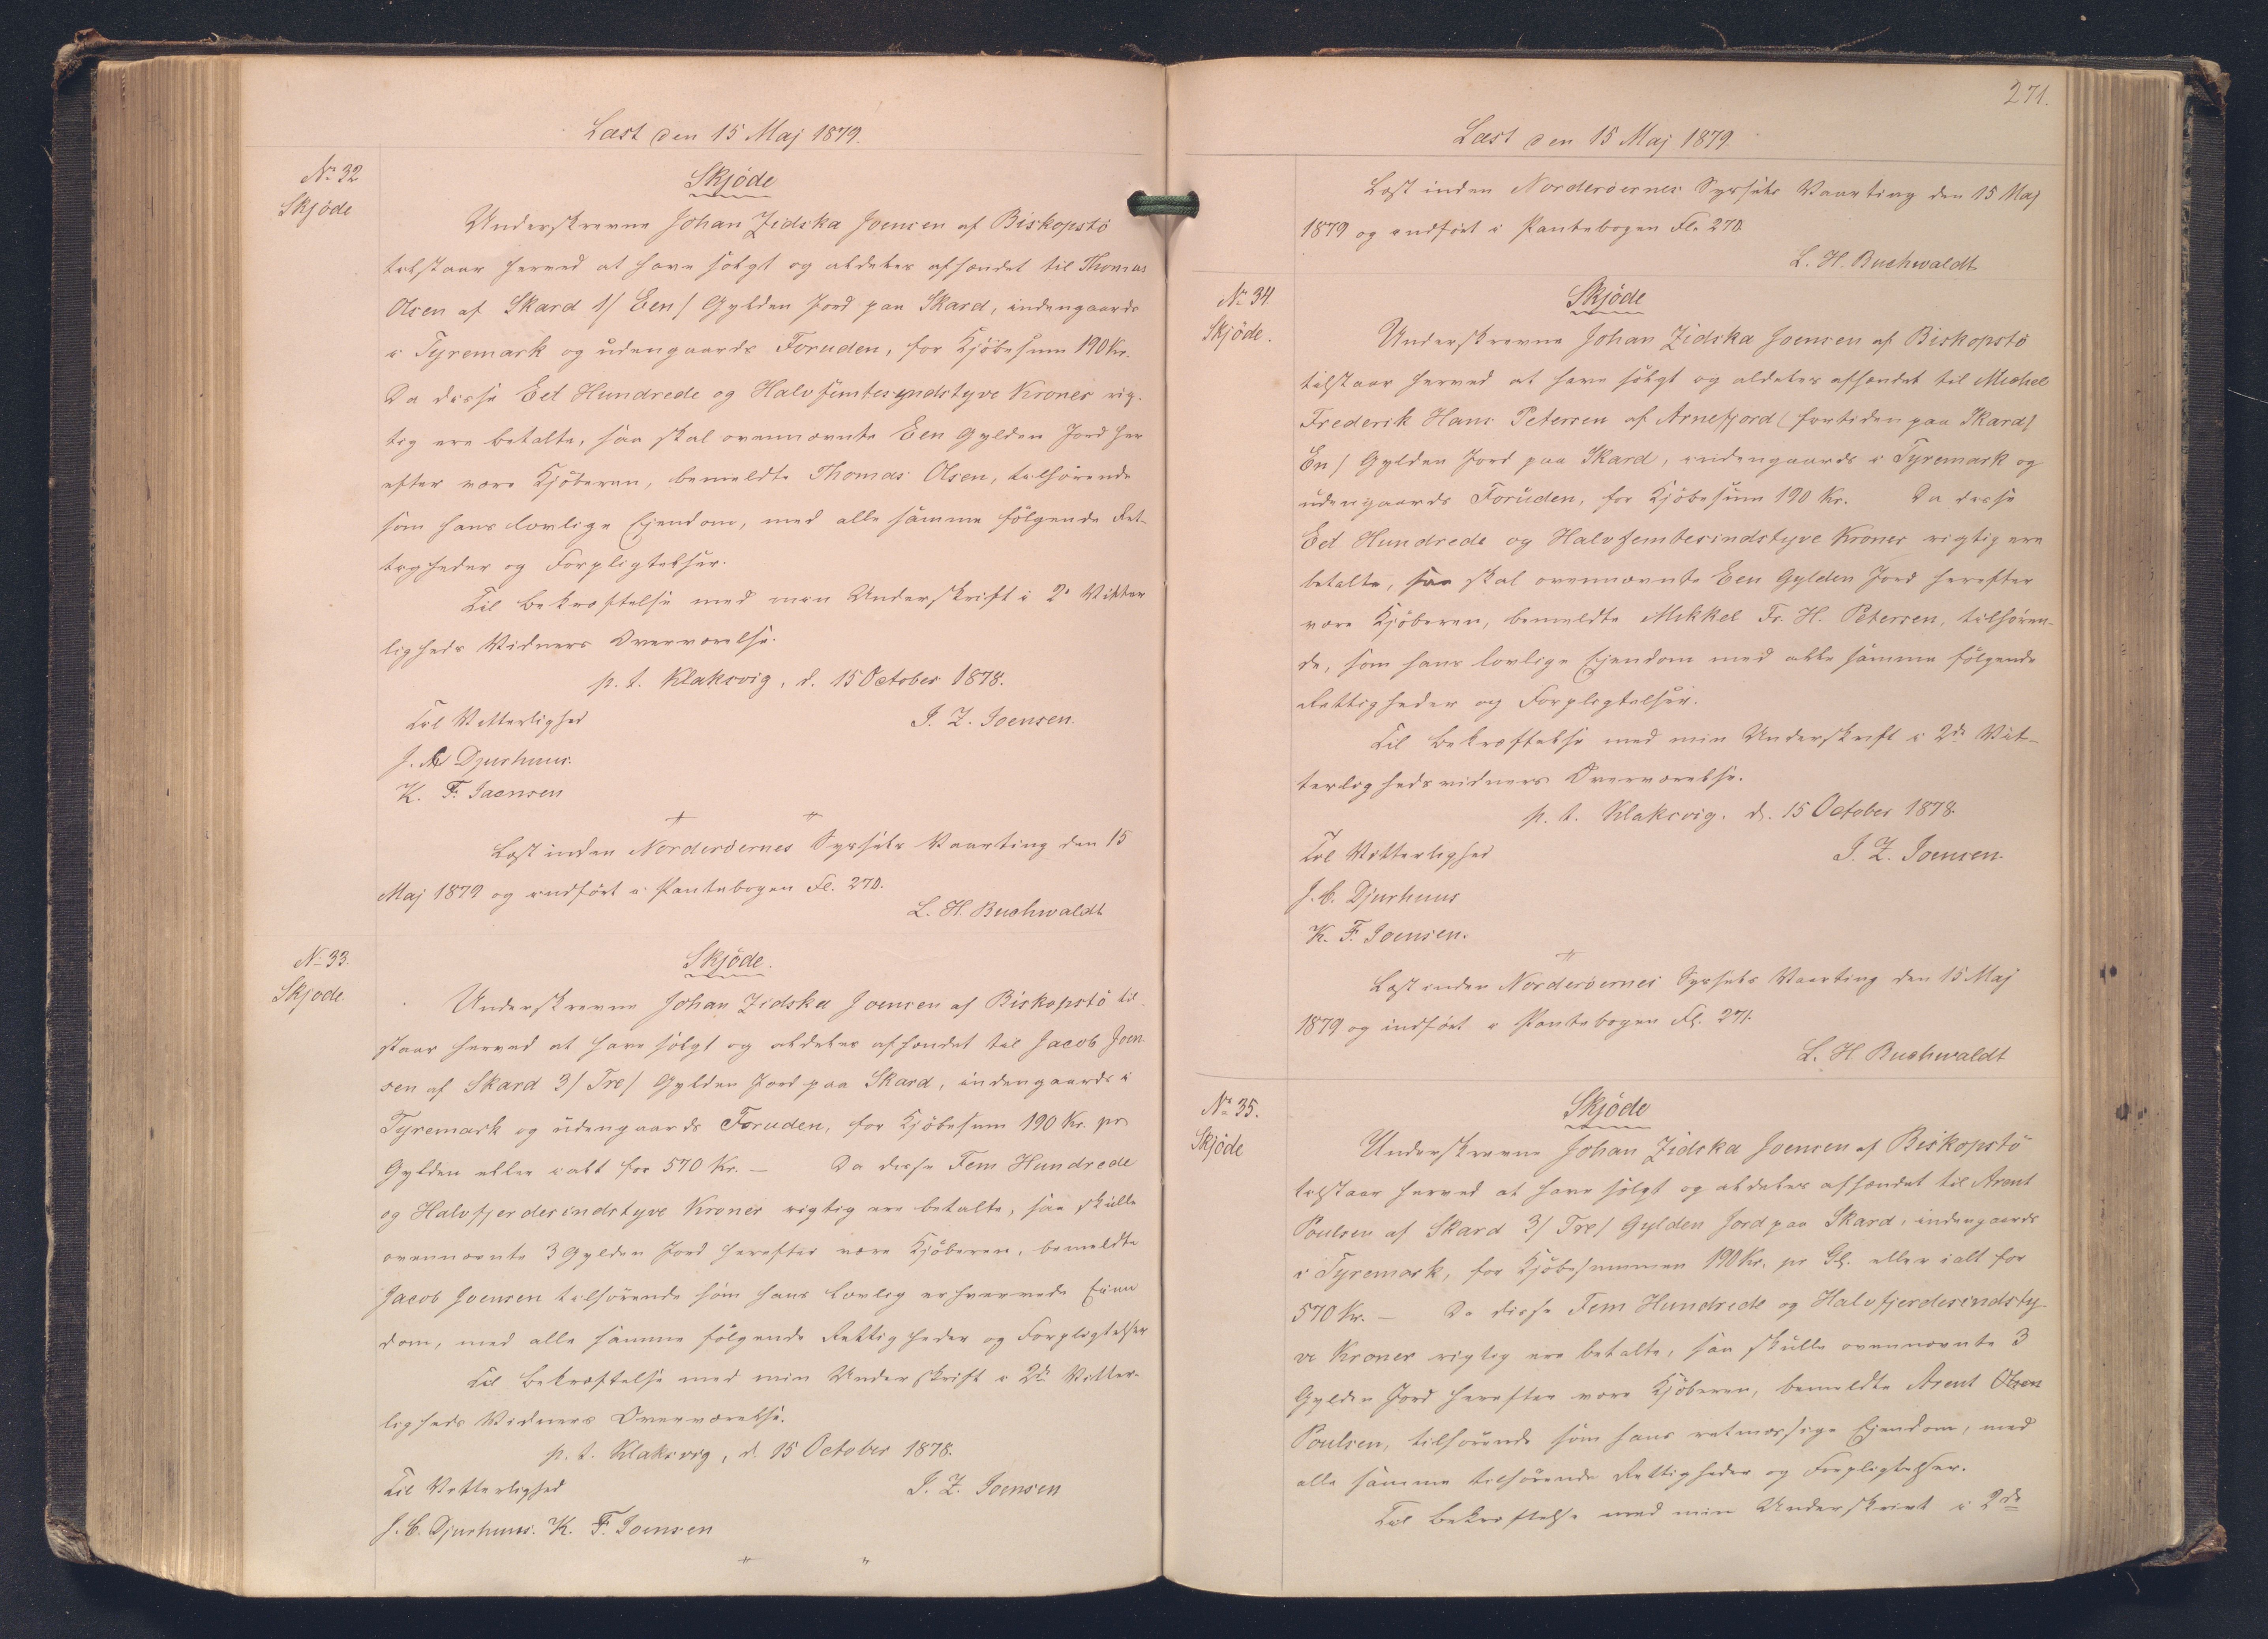 Læst den 15 Maj 1879.
No 32
Skjöde
Skjöde
Underskrevne Johan Zidska Joensen af Biskopstö
tilstaar herved at have solgt og aldeles afhændet til Thomas
Olsen af Skard 1/ Een/ Gylden Jord paa Skard, indengaards
i Tyremark og udengaards Foruden, for Kjöbesum 190 Kr.
Da disse Eet Hundrede og Halvfemtesyndstyve Kroner rig-
tig ere betalte, saa skal ovennævnte Een Gylden Jord her
efter være Kjöberen, bemeldte Thomas Olsen, tilhörende
som hans lovlige Ejendom, med alle samme fölgende Ret-
tigheder og Forpligtelser.
Til Bekræftelse med min Underskrift i 2de Vitter
ligheds Vidners Overværelse.
p. t. Klaksvig, d. 15 October 1878.
Til Vitterlighed
J. Z. Joensen.
J. C. Djurhuus.
K. F. Joensen
Læst inden Norderöernes Syssels Vaarting den 15
Maj 1879 og indfört i Pantebogen Fl. 270.
L. H. Buchwaldt
No 33.
Skjöde
Skjöde.
Underskrevne Johan Zidska Joensen af Biskopstö til-
staar herved at have solgt og aldeles afhændet til Jacob Joen
sen af Skard 3/ Tre/ Gylden Jord paa Skard, indengaards i
Tyremark og udengaards Foruden, for Kjöbesum 190 Kr. pr
Gylden eller ialt for 570 Kr. — Da disse Fem Hundrede
og Halvfjerdesindstyve Kroner rigtig ere betalte, saa skulle
ovennævnte 3 Gylden Jord herefter være Kjöberen, bemeldte
Jacob Joensen tilhörende som hans Lovlig erhvervede Eien
dom, med alle samme fölgende Rettigheder og Forpligtelser
Til Bekræftelse med min Underskrift i 2de Vitter-
ligheds Vidners Overværelse.
p. t. Klaksvig, d. 15 October 1878.
Til Vitterlighed
J. Z. Joensen
J. C. Djurhuus. K. F. Joensen
271.
Læst den 15 Maj 1879.
Læst inden Norderöernes Syssels Vaarting den 15 Maj
1879 og indfört i Pantebogen Fl. 270
L. H. Buchwaldt
No 34.
Skjöde.
Skjöde
Underskrevne Johan Zidska Joensen af Biskopstö
tilstaar herved at have solgt og aldeles afhændet til Michel
Frederik Hans Petersen af Arnefjord (fortiden paa Skard)
En/ Gylden Jord paa Skard, indengaards i Tyremark og
udengaards Foruden, for Kjöbesum 190 Kr. Da disse
Eet Hundrede og Halvfemtesindstyve Kroner rigtig ere
betalte, saa skal ovennævnte Een Gylden Jord herefter
være Kjöberen, bemeldte Mikkel Fr. H. Petersen, tilhören-
de, som hans lovlige Ejendom med alle samme fölgende
Rettigheder og Forpligtelser.
Til Bekræftelse med min Underskrift i 2de Vit-
terlighedsvidners Overværelse.
p. t. Klaksvig. d. 15 October 1878.
Til Vitterlighed
J. Z. Joensen.
J. C. Djurhuus
K. F. Joensen.
Læst inden Norderöernes Syssels Vaarting den 15 Maj
1879 og indfört i Pantebogen Fl. 271.
L. H Buchwaldt
No 35.
Skjöde
Skjöde
Underskrevne Johan Zidska Joensen af Biskopstö
tilstaar herved at have solgt og aldeles afhændet til Arent
Poulsen af Skard 3/ Tre/ Gylden Jord paa Skard, indengaards
i Tyremark, for Kjöbesummen 190 Kr. pr Gl. eller ialt for
570 Kr. — Da disse Fem Hundrede og Halvfjerdesindsty
ve Kroner rigtig ere betalte, saa skulle ovennævnte 3
Gylden Jord herefter være Kjöberen, bemeldte Arent Olsen
Poulsen, tilhörende som hans retmæssige Ejendom, med
alle samme tilhörende Rettigheder og Forpligtelser.
Til Bekræftelse med min Underskrivt i 2de